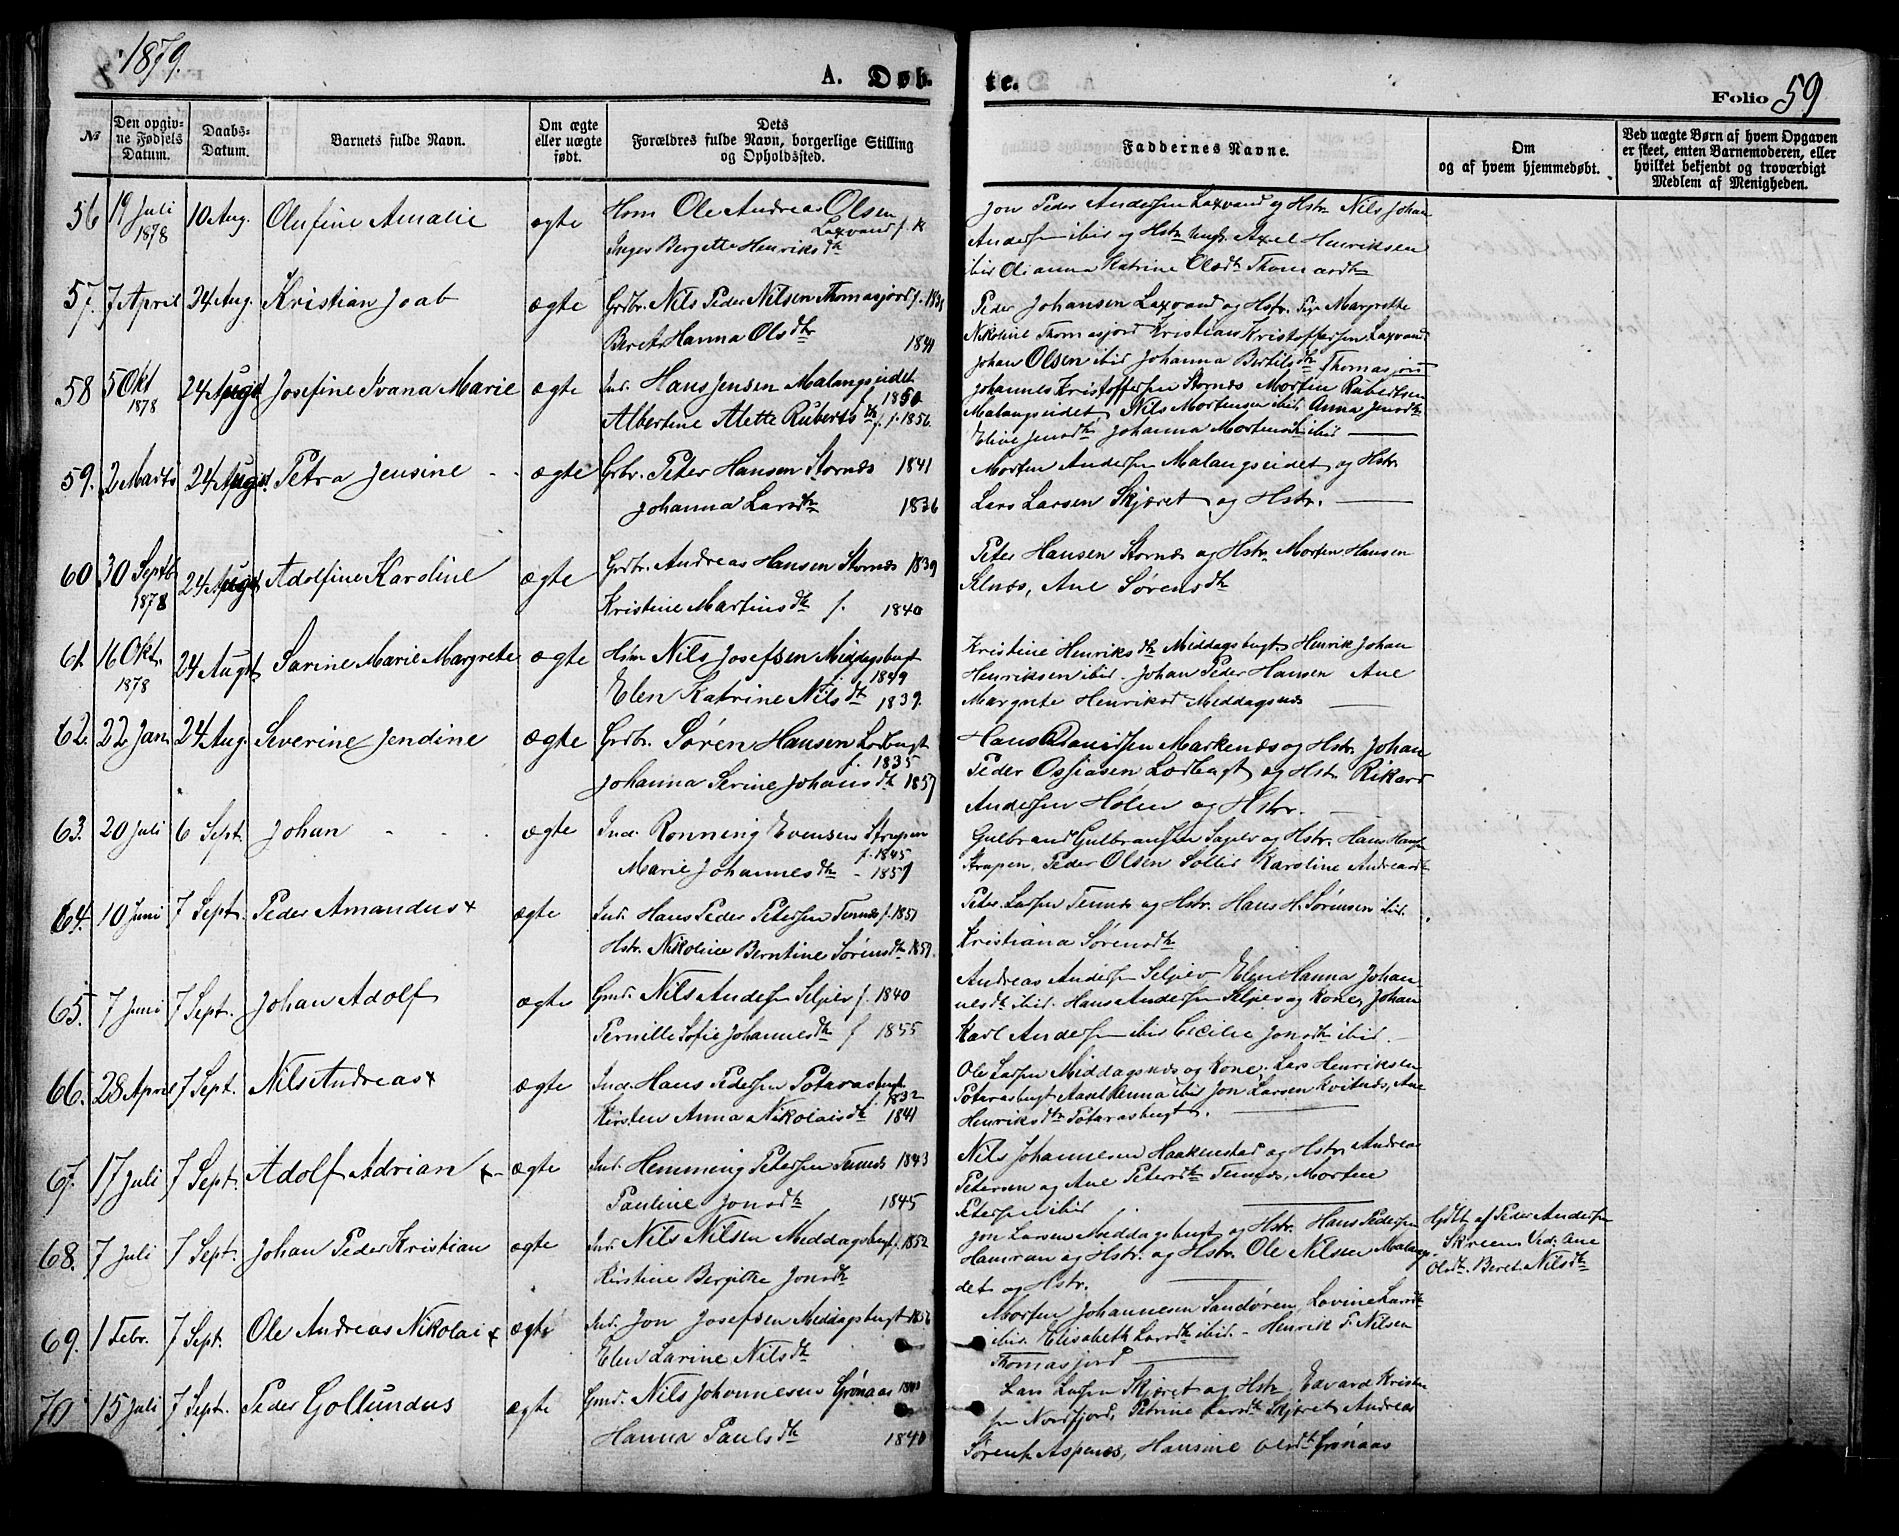 1879.
A. Døb-
te.
Folio 59
№
Den opgivne Fødsels Datum.
Daabs-Datum.
Barnets fulde Navn.
Om ægte eller uægte født.
Dets Forældres fulde Navn, borgerlige Stilling og Opholdssted.
Faddernes Navne.
Om og af hvem hjemmedøbt.
Ved uægte Børn af hvem Opgaven er skeet, enten Barnemoderen, eller hvilket bekjendt og troværdigt Medlem af Menigheden.
56 19 Juli 1878 10 Aug. Olufine Amalie ægte Ole Andreas Olsen Laxvand
Inger Bergette Henriksdtr
Jon Peder Andersen Laxvand og Hstr. Nils Johan
Andersen ibid og Hstr. Axel Henriksen
ibid Olsdtr Thomasdtr
57. 7 April 24 Aug. Kristian Joab ægte Grdbr. Nils Peder Nilsen Thomasjord
Beret Hanna Olsdtr 1841
Peder Johansen Laxvand og Hstr. Margrethe
Nikoline Thomasjord Kristian Kristoffersen Laxvand
Johan Olsen ibid Johanna Bertilsdtr Thomasjord
58 5 Okt 1878 24 Augst Josefine Ivana Marie ægte Ind. Hans Jensen Malangseidet f. 1850
Albertine Alette Rubertsdtr f. 1856.
Johannes Kristoffersen Stornæs Morten Rubertsen
Malangseidet, Nils Mortensen ibid. Anna Jensdtr
Jensdtr, Johanna Mortensdtr ibid
59. 2 Marts 24 Augst. Petra Jensine ægte Grbr. Peter Hansen Stornæs 1841
Johanna Larsdtr 1836
Morten Andersen Malangseidet og Hstr.
Lars Larsen Skjæret og Hstr.
60 30 Septb 1878 24 Augst Adolfine Karoline ægte Grdbr. Andreas Hansen Stornæs 1839
Kristine Martinsdtr f. 1840
Peter Hansen Stornæs og Hstr. Morten Hansen
Ane Sørensdtr
61. 16 Okt. 1878 24 Augst. Sarine Marie Margrete ægte Hsm Nils Josefsen Middagsbugt 1849
Elen Katrine Nilsdtr 1839.
Kristine Henriksdtr Middagsbugt. Henrik Johan
Henriksen ibid. Johan Peder Hansen Ane
Margrete Henriksd Middagsnæs
62. 22 Jan. 24 Aug. Severine Jendine ægte Grdbr. Søren Hansen Lodbugt f. 1835
Johanna Serine Johansdtr 1857
Hans Danielsen Markenæs og Hstr. Johan
Peder Ossiasen Lodbugt og Hstr. Rikard
Andersen Holen og Hstr.
63. 20 Juli 6 Sept. Johan ægte Ind. Rønning Evensen Strupen f. 1845
Marie Johannesdtr - 1857
Gulbrand Gulbrandsen Sagelv og Hstr. Hans Hansen
Strupen, Peder Olsen Sollid Karoline Andreasdtr
64. 10 Juni 7 Sept. Peder Amandus x ægte Ind. Hans Peder Petersen Tennes f. 1851
Hstr. Nikoline Berntine Sørensdtr 1851.
Peter Larsen Tennes og Hstr. Hans H. Sørensen ibid.
Kristiana Sørensdtr
65. 7 Juni 7 Sept. Johan Adolf ægte Gmd. Nils Andersen Seljelv f. 1840
Pernille Sofie Johannesdtr f 1855
Andreas Andersen Seljelv Elen Hanna Johan-
nesdtr ibid. Hans Andersen Seljelv og Kone, Johan
Karl Andersen ibid Cecilie Jonsdtr ibid.
66. 28 April 7 Sept. Nils Andreas x ægte Ind. Hans Pedersen Potarasbugt f. 1832
Kirsten Anna Nikolaisdtr 1841
Ole Larsen Middagsnæs og Kone, Lars Henriksen
Potarasbugt ibid Jon Larsen Kvitnæs, Ane
Henriksdtr Potarasbugt.
67. 17 Juli 7 Sept. Adolf Adrian x ægte Ind. Hemming Petersen Tennes 1843
Pauline Jonsdtr 1845
Nils Johannesen Haakenstad og Hstr. Andreas
Petersen og Ane Petersdtr Tennes, Morten
Petersen ibid
68. 7 Juli 7 Sept. Johan Peder Kristian ægte Ind. Nils Nilsen Middagsbugt f. 1852
Kirstine Bergitte Jonsdtr
Jon Larsen Middagsbugt og Hstr. Hans Pedersen
Hamran og Hstr. og Hstr. Ole Nilsen Malangs-
det og Hstr.
Hjdbt af Peder Andersen
Skreen. Vid. Ane
Olsdtr. Beret Nilsdtr
69. 1 Febr. 7 Sept. Ole Andreas Nikolai x ægte Ind. Jon Josefsen Middagsbugt 1856
Elen Larine Nilsdtr
Morten Johannesen Sandøren, Lovine Larsdtr
ibid. Elisabeth Larsdtr ibid. - Henrik P. Nilsen
Thomasjord
70 15 Juli 7 Sept. Peder Gollundus ægte Gmd. Nils Johannesen Grønaas
Hanna Paulsdtr 1840
Lars Larsen Skjæret og Hstr. Edvard Kristen-
sen Nordfjord, Petrine Larsdtr Skjæret Andreas
Sørens. Aspenes, Hansine Olsdtr Grønaas